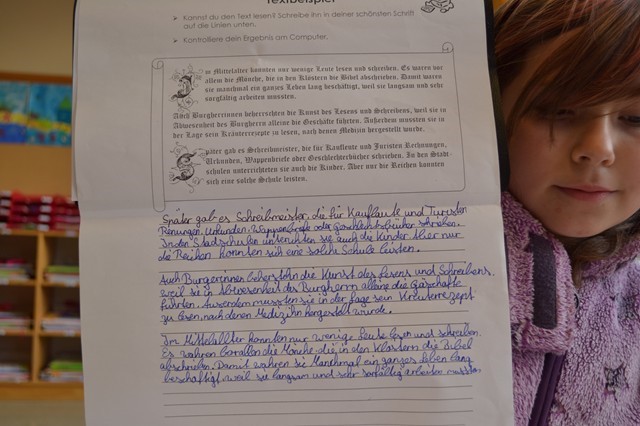 Textbeispiel
➢ Kannst du den Text lesen? Schreibe ihn in deiner schönsten Schrift
auf die Linien unten.
➢ Kontrolliere dein Ergebnis am Computer.
Im Mittelalter konnten nur wenige Leute lesen und schreiben. Es waren vor
allem die Mönche, die in den Klöstern die Bibel abschrieben. Damit waren
sie manchmal ein ganzes Leben lang beschäftigt, weil sie langsam und sehr
sorgfältig arbeiten mussten.
Auch Burgherrinnen beherrschten die Kunst des Lesens und Schreibens, weil sie in
Abwesenheit des Burgherrn alleine die Geschäfte führten. Außerdem mussten sie in
der Lage sein Kräuterrezepte zu lesen, nach denen Medizin hergestellt wurde.
Später gab es Schreibmeister, die für Kaufleute und Juristen Rechnungen,
Urkunden, Wappenbriefe oder Geschlechterbücher schrieben. In den Stadt-
schulen unterrichteten sie auch die Kinder. Aber nur die Reichen konnten
sich eine solche Schule leisten.
Später gab es Schreibmeister, die für Kauflaute und
Urkunden, Wappenbriefe oder
In den Stadtschulen sie auch die Kinder. Aber nur
die Reihen konnten sich eine solche Schule leisten.
Auch die Kunst des Lesens und Schreibens,
weil sie in des Burgherrn alleine die
führten. mussten sie in der Lage sein
zu lesen, nach denen hergestellt wurde.
Im konnten nur wenige Leute lesen und schreiben.
Es wahren die in den Klöstern die Bibel
abschrieben. Damit wahren sie ein ganzes leben lang
beschäftigt, weil sie langsam und sehr arbeiten mussten